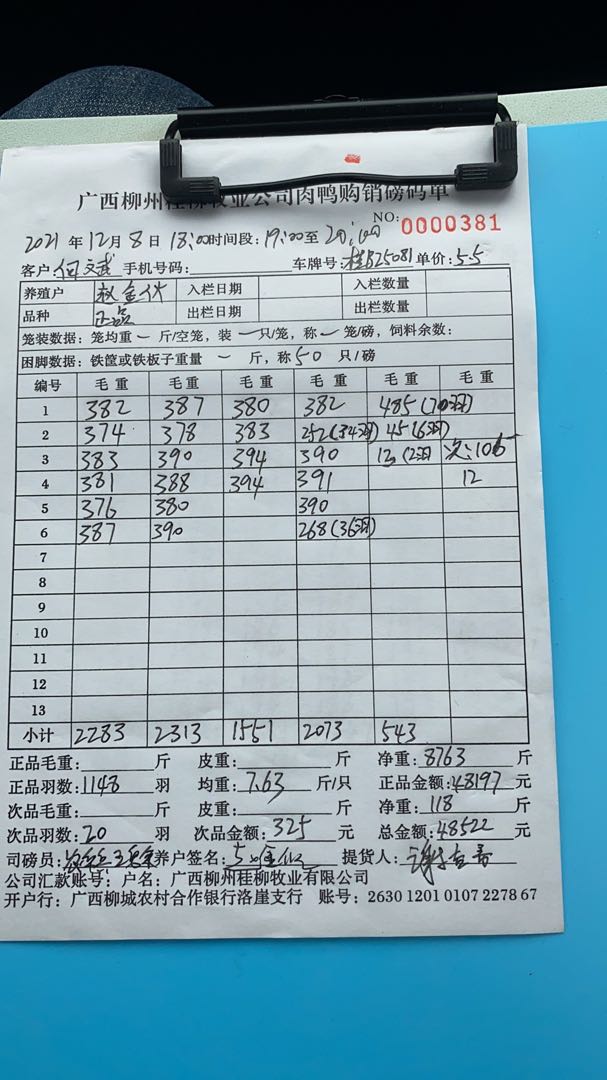 广西柳州桂柳牧业公司肉鸭购销磅码单
NO: 0000381
2021年12月8日 18:00时间段: 19:00至20:00
客户: 何文武 手机号码: 车牌号: 桂B25081 单价: 5.5
养殖户 入栏日期 入栏数量
品种 正品 出栏日期 出栏数量
笼装数据: 笼均重 一 斤/空笼, 装 一 只/笼, 称 一 笼/磅, 饲料余数:
困脚数据: 铁筐或铁板子重量 一 斤, 称 50 只/磅
编号 毛重 毛重 毛重 毛重 毛重 毛重
1 382 387 380 382 485(70羽)
2 374 378 383 252(34羽) 45(6羽)
3 383 390 394 390 13(2羽) 次:106
4 381 388 394 391 12
5 376 380 390
6 387 390 268(36羽)
7
8
9
10
11
12
13
小计 2283 2313 1551 2073 543
正品毛重: 斤 皮重: 斤 净重: 8763 斤
正品羽数: 1148 羽 均重: 7.63 斤/只 正品金额: 48197 元
次品毛重: 斤 皮重: 斤 净重: 118 斤
次品羽数: 20 羽 次品金额: 325 元 总金额: 48522 元
司磅员: 养户签名: 提货人:
公司汇款账号: 户名: 广西柳州桂柳牧业有限公司
开户行: 广西柳城农村合作银行洛崖支行 账号: 2630 1201 0107 2278 67